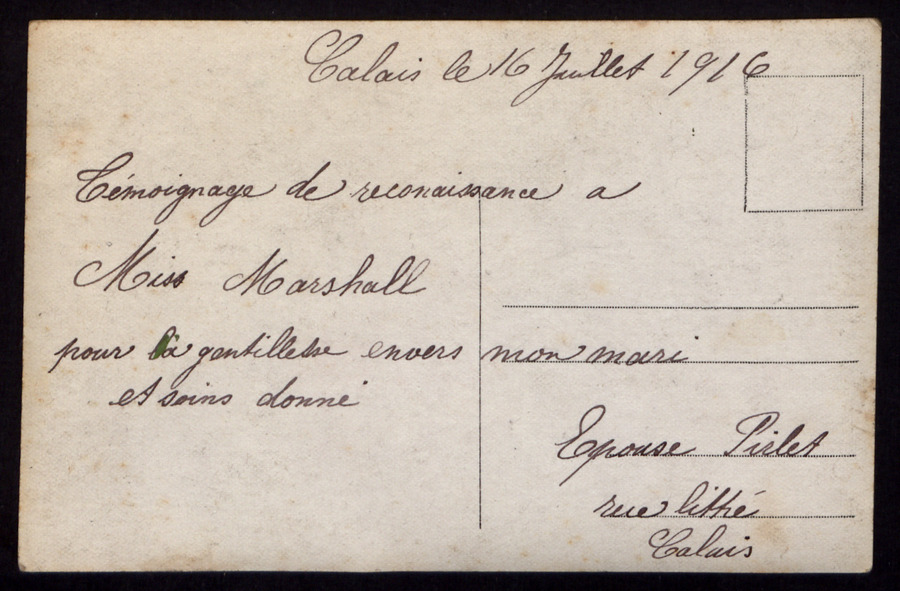 Calais le 16 Juillet 1916
Témoignage de reconaissance a
Miss Marshall
pour la gentillesse envers mon mari
et soins donné
Epouse Pirlet
rue littré
Calais